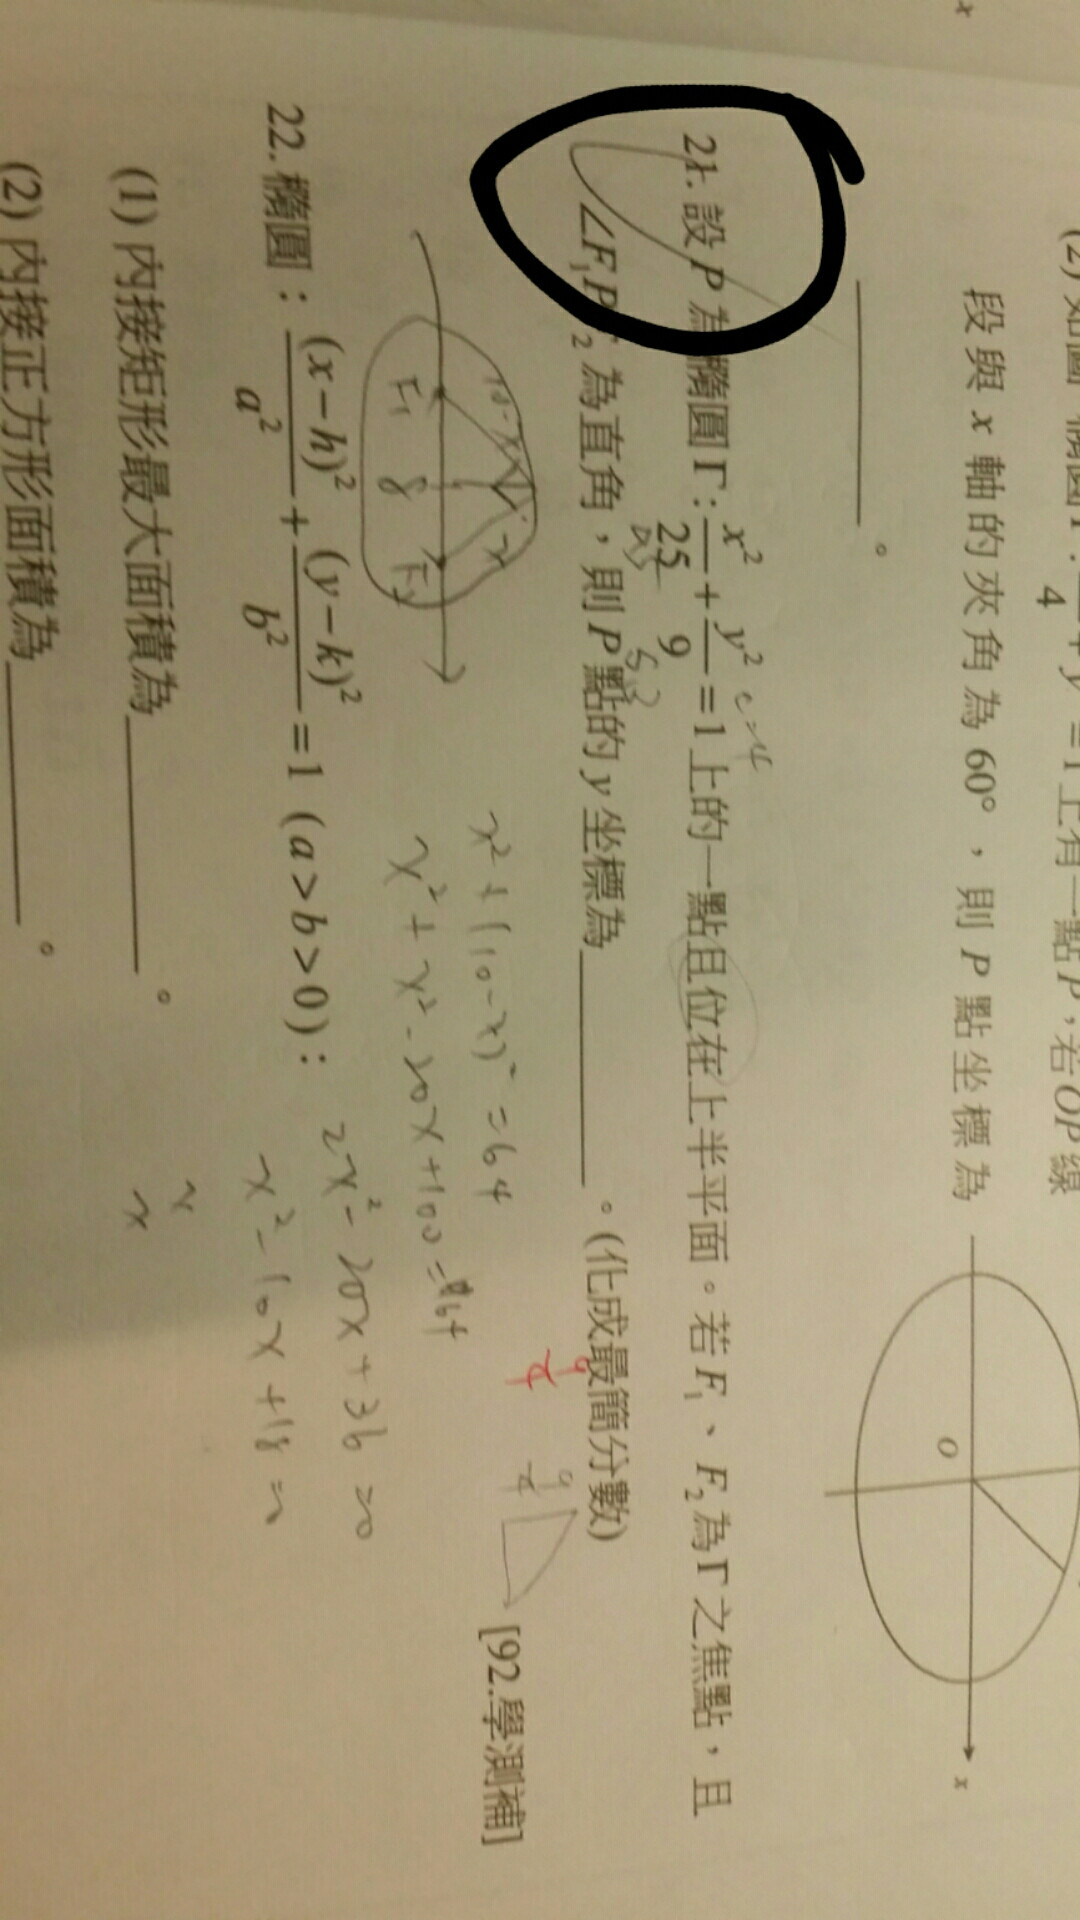 x
(2) 如圖
4
上有一點P,若OP線
段與 x 軸的夾角為 60°,則 P 點坐標為
。
O
x
21. 設P為橢圓Γ: x²/25 + y²/9 = 1 上的一點且位在上半平面。若F₁、F₂為Γ之焦點,且
c=4
∠F₁PF₂為直角,則P點的y坐標為。(化成最簡分數)
9/4
9/4
[92.學測補]
10-x
x
F₁
8
F₂
x²+(10-x)²=64
x²+x²-20x+100=64
2x²-20x+36=0
x²-10x+18=0
22. 橢圓: (x-h)²/a² + (y-k)²/b² = 1 (a>b>0):
(1) 內接矩形最大面積為。
x
x
(2) 內接正方形面積為。